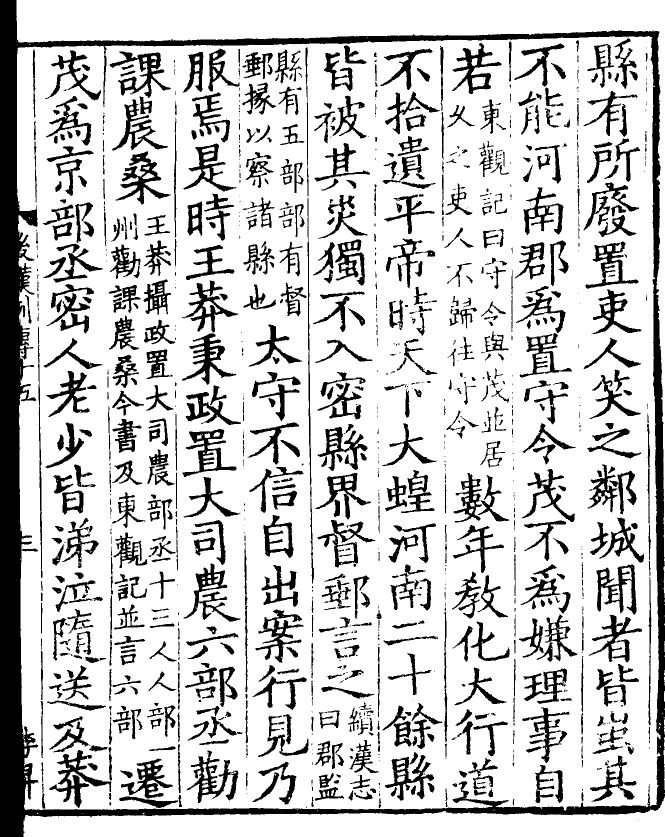 縣有所廢置吏人笑之鄰城聞者皆蚩其
不能河南郡爲置守令茂不爲嫌理事自
若東觀記曰守令與茂並居
久之吏人不歸往守令數年教化大行道
不拾遺平帝時天下大蝗河南二十餘縣
皆被其災獨不入密縣界督郵言之續漢志
曰郡監
縣有五部部有督
郵掾以察諸縣也太守不信自出案行見乃
服焉是時王莽秉政置大司農六部丞勸
課農桑王莽攝政置大司農部丞十三人人部一
州勸課農桑今書及東觀記並言六部遷
茂爲京部丞密人老少皆涕泣隨送及莽
後漢列傳十五
三